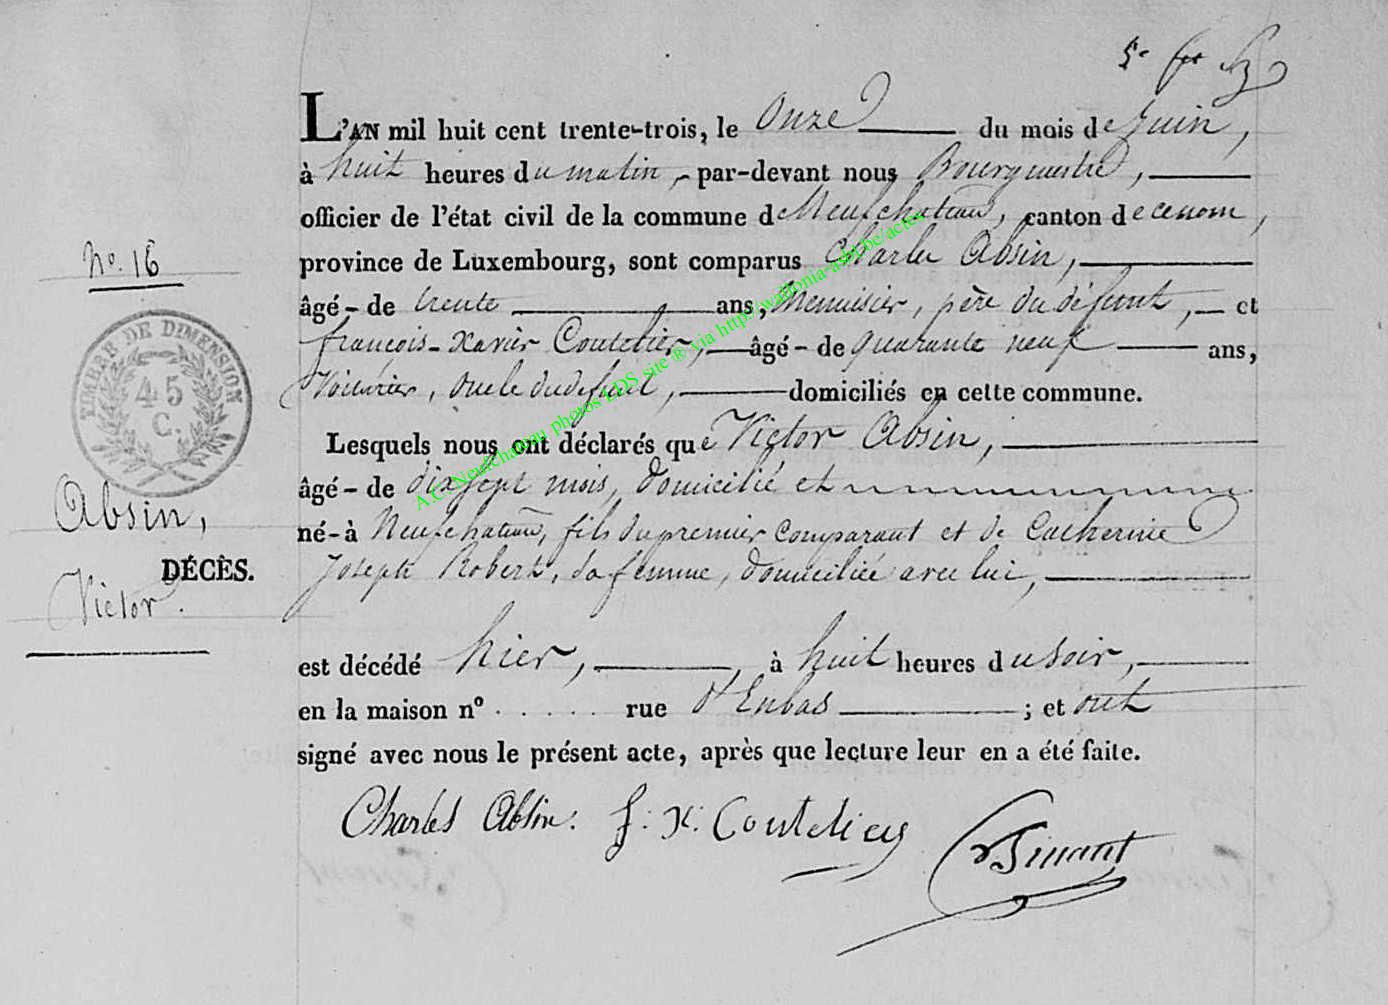 5e
L'AN mil huit cent trente-trois, le Onze du mois de Juin,
à huit heures du matin, par-devant nous Bourgmestre,
officier de l'état civil de la commune de Neufchateau, canton de ce nom,
province de Luxembourg, sont comparus Charles Absin,
âgé - de trente ans, Menuisier, père du défunt, et
françois-Xavier Coutelier, âgé - de quarante neuf ans,
Voiturier, oncle du defunt, domiciliés en cette commune.
Lesquels nous ont déclarés que Victor Absin,
âgé - de dix sept mois, domicilié et
né - à Neufchateau, fils du premier comparant et de Catherine
Joseph Robert, sa femme, domiciliée avec lui,
est décédé hier, à huit heures du soir,
en la maison no . . . . . . rue d'Enbas ; et ont
signé avec nous le présent acte, après que lecture leur en a été faite.
Charles Absin. f. X. Coutelier
No. 16
TIMBRE DE DIMENSION
45
C.
Absin,
DÉCÈS.
Victor.
A.C. Neufchateau photos LDS site ® via http://wallonia-asbl.be/actes